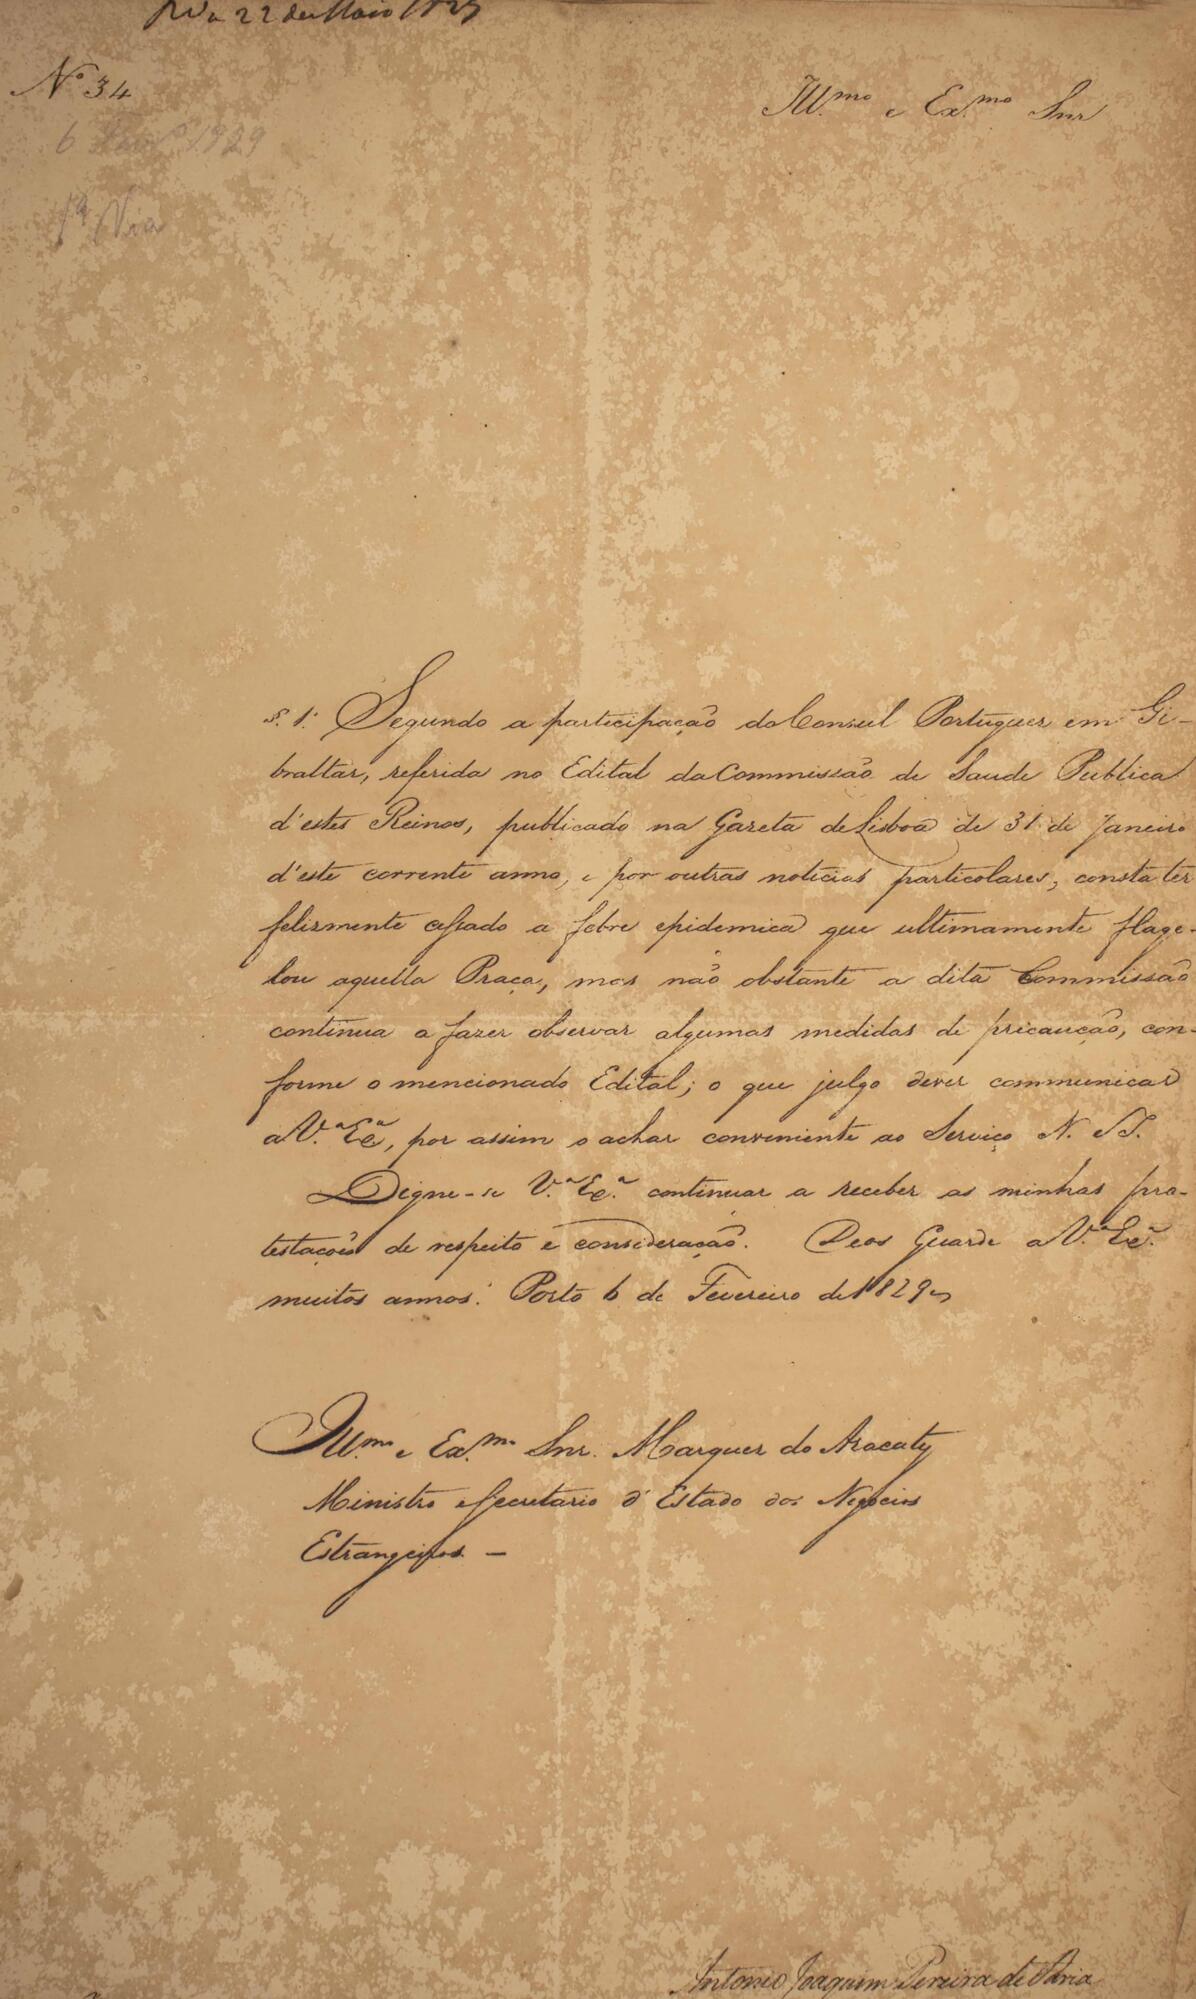 Rda 22 de Maio 1829
Nº 34
6 Fevrº 1829
1ª Via
Illmo e Exmo Snr
§. 1º: Segundo a participação do Consul Portuguez em Gi-
braltar, referida no Edital da Commissão de Saude Publica
d'estes Reinos, publicado na Gazeta de Lisboa de 31 de Janeiro
d'este corrente anno, e por outras noticias particolares, consta ter
felizmente cessado a febre epidemica que ultimamente flage-
lou aquella Praça, mas não obstante a dita Commissão
continua a fazer observar algumas medidas de pricaução, con-
forme o mencionado Edital; o que julgo dever communicar
a V.ª Exª, por assim o achar conveniente ao Serviço N. e I.
Digne-se V.ª Exª continuar a receber as minhas pro-
testações de respeito e consideração. Deos Guarde a V.ª Exª
muitos annos. Porto 6 de Fevereiro de 1829
Illmo e Exmo Snr. Marquez do Aracaty
Ministro e Secretario d'Estado dos Negocios
Estrangeiros. —
Antonio Joaquim Pereira de Faria